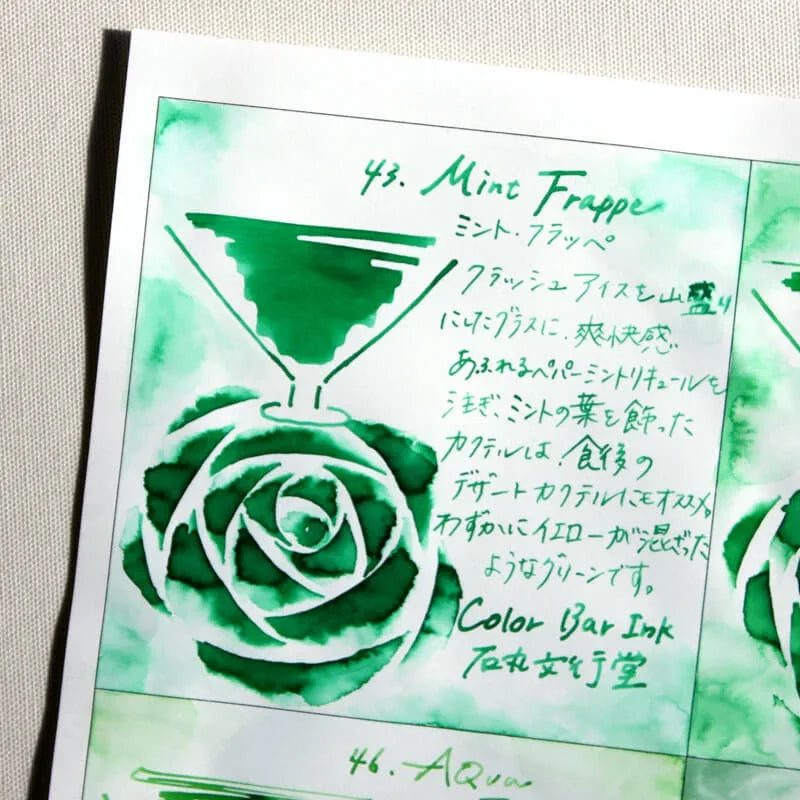 43. Mint Frappe
ミント・フラッペ
クラッシュアイスを山盛り
にしたグラスに、爽快感
あふれるペパーミントリキュールを
注ぎ、ミントの葉を飾った
カクテルは、食後の
デザートカクテルにもオススメ。
わずかにイエローが混ざった
ようなグリーンです。
Color Bar Ink
石丸文行堂
46. Aqua